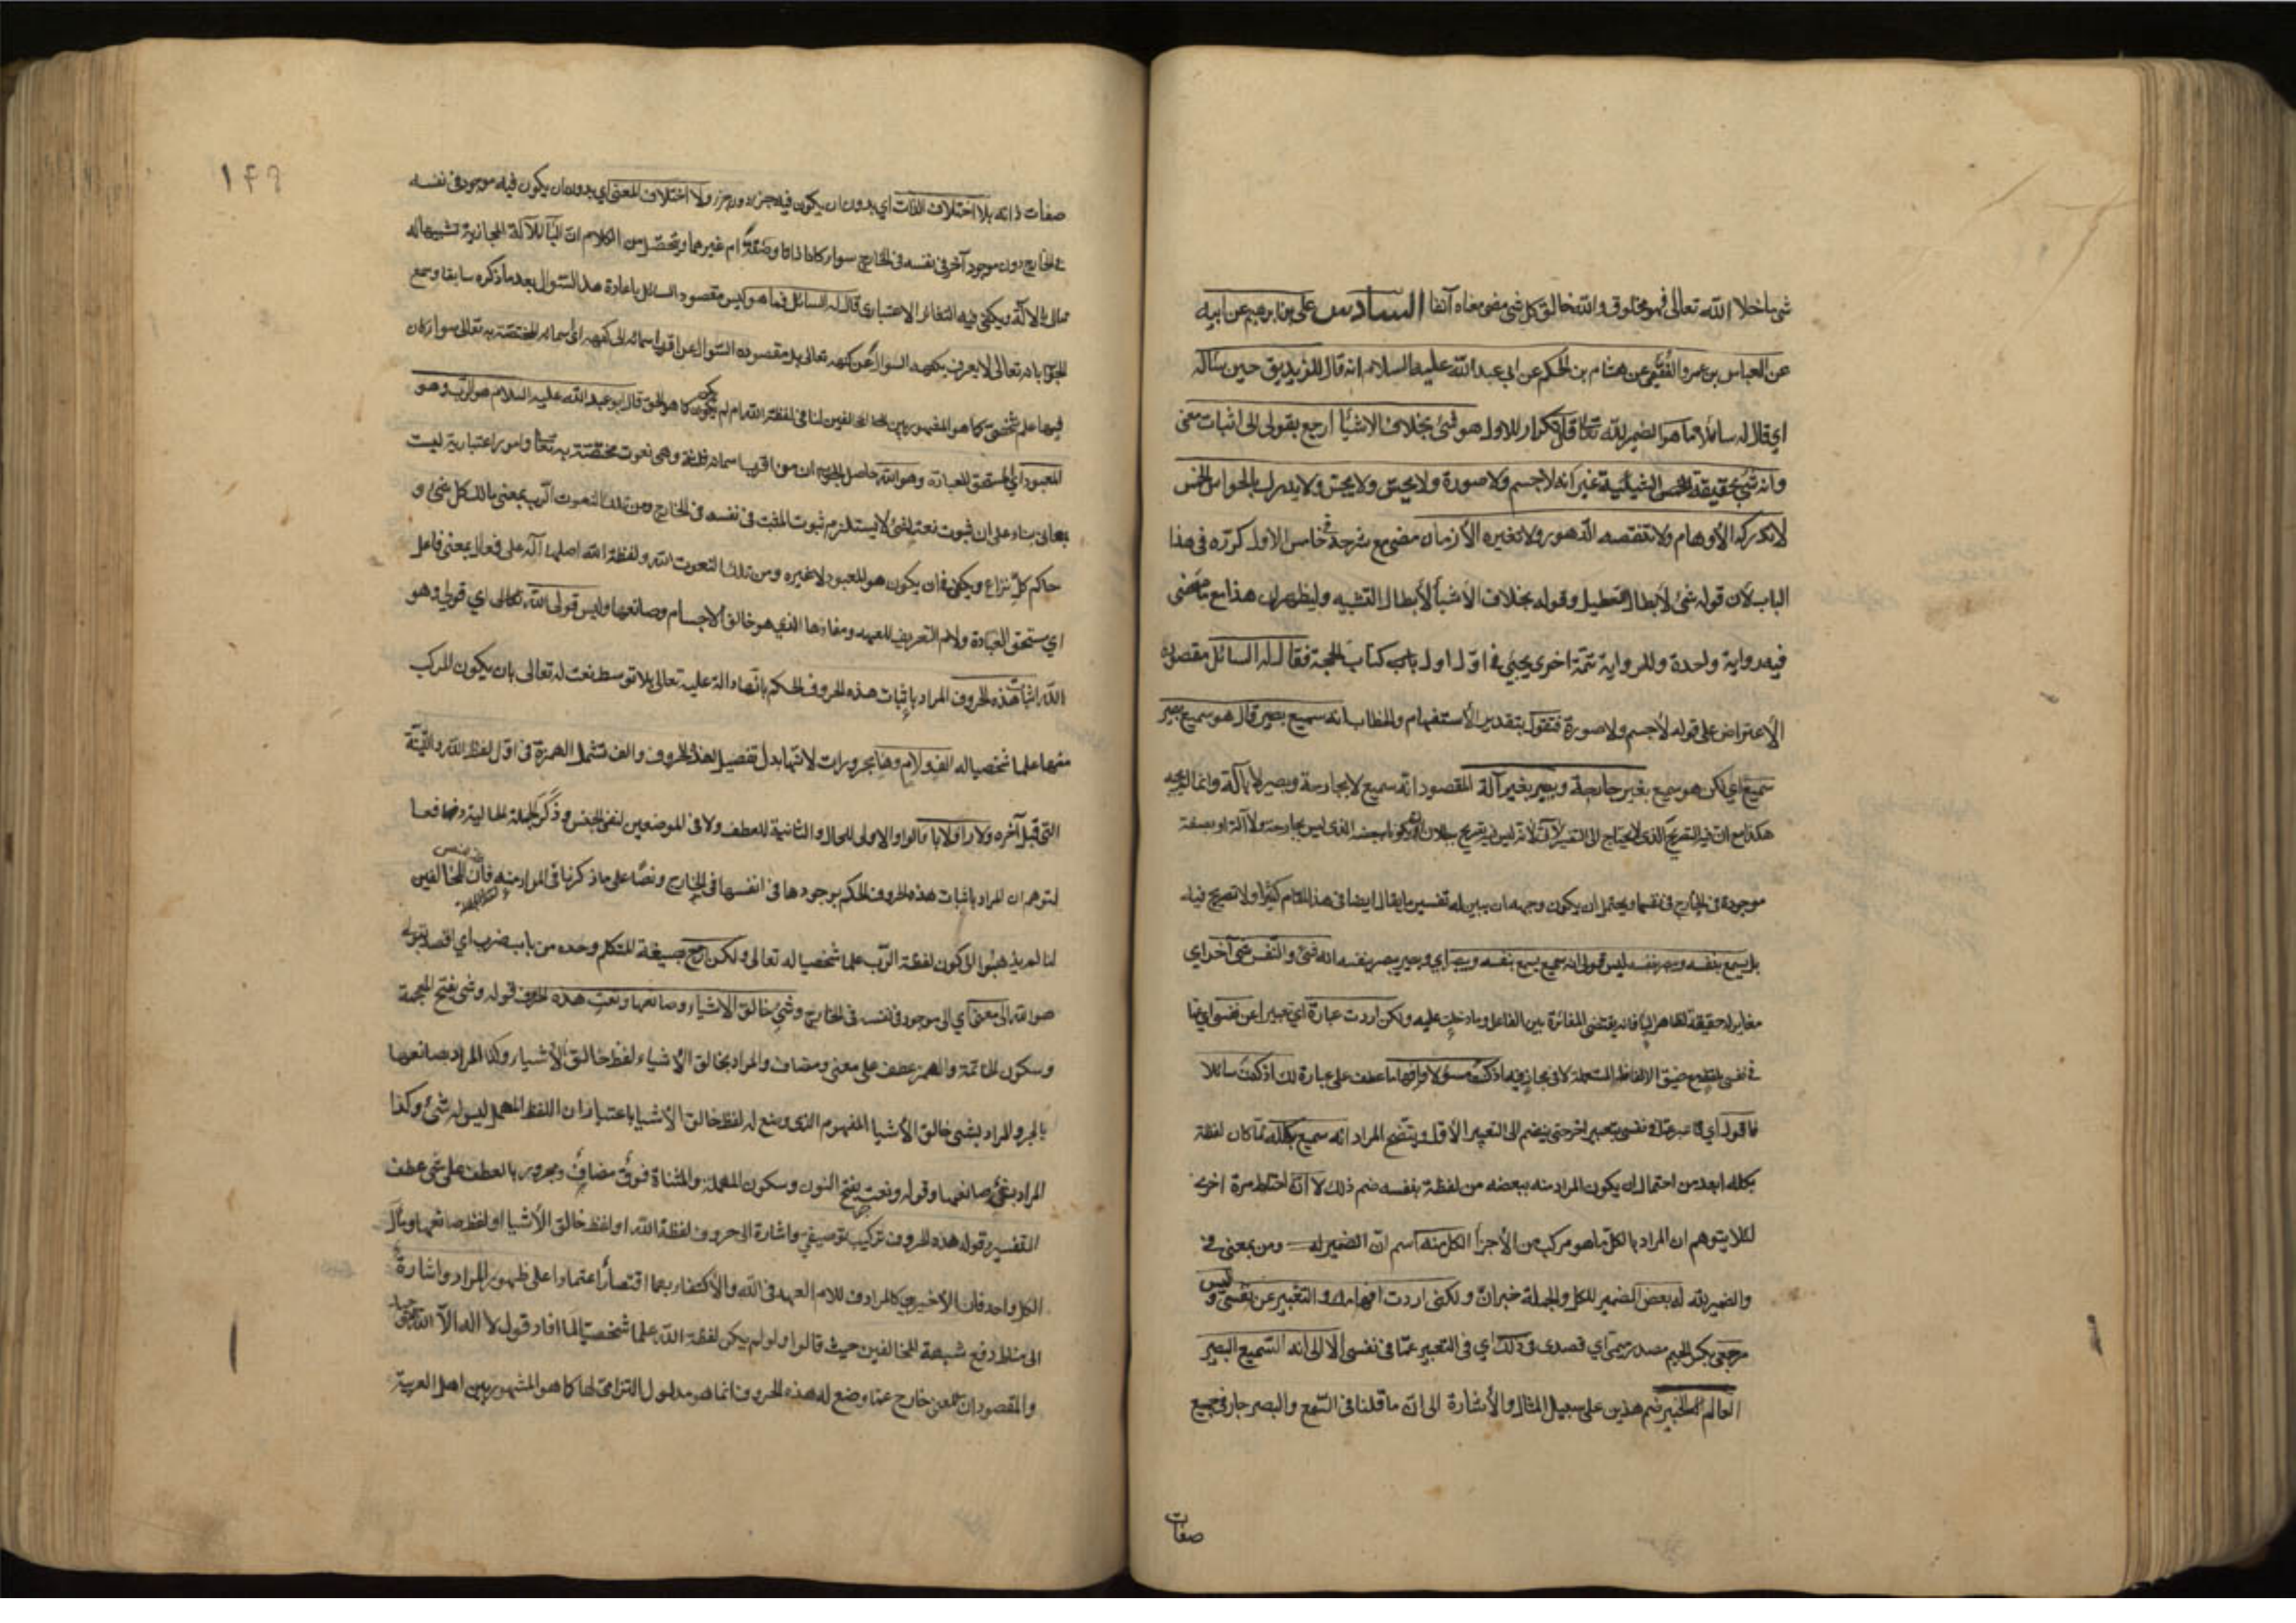 شئ ما خلا الله تعالى فهو مخلوق والله خالق كل شئ مضى معناه آنفا السادس علي بن ابرهيم عن ابيه
عن العباس بن عمرو الفقيمي عن هشام بن الحكم عن ابي عبد الله عليه السلام انه قال للزنديق حين سأله
اي قال له سائلا ما هو الضمير لله تعالى قال تكرار للاول هو شئ بخلاف الاشيا ارجع بقولي الى اثبات معنى
وانه شئ بحقيقة الشيئية غير انه لا جسم ولا صورة ولا يحس ولا يجس ولا يدرك بالحواس الخمس
لا تدركه الأوهام ولا تنقصه الدهور ولا تغيره الأزمان مضى مع شرحه في خامس الاول كرره في هذا
الباب لأن قوله شئ لأبطال التعطيل وقوله بخلاف الأشيا لأبطال التشبيه وليظهر ان هذا مع ما مضى
فيه رواية واحدة وللرواية تتمة اخرى يجيئ في اول اول باب كتاب الحجة فقال له السائل مقصوده
الاعتراض على قوله لا جسم ولا صورة فتقول بتقدير الأستفهام والخطاب انه سميع بصير قال هو سميع بصير
سميع اي لكن هو سميع بغير جارحة وبصير بغير آلة المقصود انه سميع لا بجارحة وبصير لا بآلة وانما
موجودة في الخارج في نفسها ويحتمل ان يكون وجهه ان يبين له تفسير ما يقال ايضا في هذا المقام كثيرا ولا تصريح فيه
بل يسمع بنفسه ويبصر بنفسه ليس قولي انه سميع يسمع بنفسه وبصير اي وبصير يبصر بنفسه انه شئ والنفس شئ آخر اي
مغاير له حقيقة كما هو ظاهر الباء فانه يقتضي المغائرة بين الفاعل وما دخلت عليه ولكن اردت عبارة اي تعبيرا عن نفسي اي عما
في نفسي لضيق الالفاظ المستعملة لا في مجاز فيه اذ كنت مسؤلا وافهاما عطف على عبارة لك اذ كنت سائلا
فاقول اي عما في نفسي بتعبير آخر حتى ينضم الى التعبير الأول ويتضح المراد انه سميع بكله لما كان لفظة
بكله ابعد من احتمال ان يكون المراد منه ببعضه من لفظة بنفسه ضم ذلك لا ان احتاط مرة اخرى
لئلا يتوهم ان المراد بالكل ما هو مركب من الأجزأ الكل منه اسم ان الضمير له ومن بمعنى في
والضمير لله له بعض الضمير للكل والجملة خبر ان ولكني اردت افهامك والتعبير عن نفسي وليس
مرجعي بكسر الجيم مصدر ميمي اي قصدي في ذلك اي في التعبير عما في نفسي الا الى انه السميع البصير
العالم الخبير ضم هذين على سبيل المثال والأشارة الى ان ما قلنا في السمع والبصر جار في جميع
صفات
١٤٩
صفات ذاته بلا اختلاف الذات اي بدون ان يكون فيه جزء دون جزء ولا اختلاف المعنى اي بدون ان يكون فيه موجود في نفسه
في الخارج دون موجود آخر في نفسه في الخارج سواء كانا ذاتا وصفة ام غيرهما ويتحصل من الكلام ان البأ للآلة المجازية تشبيها له
بالآلة ويكفي فيه التغائر الاعتباري قال له السائل فما هو ليس مقصود السائل باعادة هذا السؤال بعد ما ذكره سابقا وسمع
الجواب بانه تعالى لا يعرف بكنهه السؤال عن كنهه تعالى بل مقصوده السؤال عن اقرب اسمائه الى كنهه اي اسمائه المختصة به تعالى سواء كان
فيها علم شخصي كما هو المشهور بين المخالفين لنا في لفظة الله ام لم يكن كما هو الحق قال ابو عبد الله عليه السلام هو الرب وهو
المعبود اي المستحق للعبادة وهو الله حاصل الجواب ان من اقرب اسمائه ثلثة وهي نعوت مختصة به تعالى وامور اعتبارية ليست
بمعاني بناء على ان ثبوت نعت لشئ لا يستلزم ثبوت المثبت في نفسه في الخارج ومن تلك النعوت الرب بمعنى مالك كل شئ و
حاكم كل نزاع ويكفي فان يكون هو المعبود لا غيره ومن تلك النعوت الله ولفظة الله اصلها آله على فعال بمعنى فاعل
اي مستحق العبادة ولام التعريف للعهد ومفادها الذي هو خالق الاجسام وصانعها وليس قولي الله تعالى اي قولي وهو
الله اثبات هذه الحروف المراد باثبات هذه الحروف الحكم بانها دالة عليه تعالى بلا توسط نعت له تعالى بان يكون المركب
منها علما شخصيا له الف ولام وها مجرورات لانها بدل تفصيل لهذه الحروف والف تشمل الهمزة في اول لفظ الله واللينة
التي قبل آخره ولا را ولا با الواو الاولى للحال والثانية للعطف ولا في الموضعين لنفي الجنس وذكر الجملة الحالية دفعا
لتوهم ان المراد باثبات هذه الحروف الحكم بوجودها في انفسها في الخارج ونصا على ما ذكرنا في المراد منه فان المخالفين
لنا لم يذهبوا الى كون لفظة الرب علما شخصيا له تعالى ولكن ارجع صيغة المتكلم وحده من باب ضرب اي اقصد بقولي
هو الله الى معنى اي الى موجود في نفسه في الخارج وشئ خالق الاشياء وصانعها ونعت هذه الحروف قوله وشئ بفتح المعجمة
وسكون الخاتمة والهمز عطف على معنى ومضاف والمراد بخالق الأشياء لفظ خالق الأشياء وكذا المراد بصانعها
بالجر والمراد بشئ خالق الأشيا المفهوم الذي وضع له لفظ خالق الأشيا باعتبار ان اللفظ المهمل ليس له شئ وكذا
المراد بشئ صانعها وقوله ونعت بفتح النون وسكون المهملة والمثناة فوق مضاف ومجرور بالعطف على شئ عطف
التفسير وقوله هذه الحروف تركيب توصيفي واشارة الى حروف لفظة الله او لفظ خالق الأشيا او لفظ صانعها ومآل
الكل واحد فان الاخيرين كالمرادف للام العهد في الله والأكتفاء بهما اقتصارا اعتمادا على ظهور المراد واشارة
الى مناط دفع شبهة المخالفين حيث قالوا لو لم يكن لفظة الله علما شخصيا لما افاد قول لا اله الا الله التوحيد
والمقصود ان المعنى خارج عما وضع له هذه الحروف انما هو مدلول التزامي لها كما هو المشهور بين اهل العربية